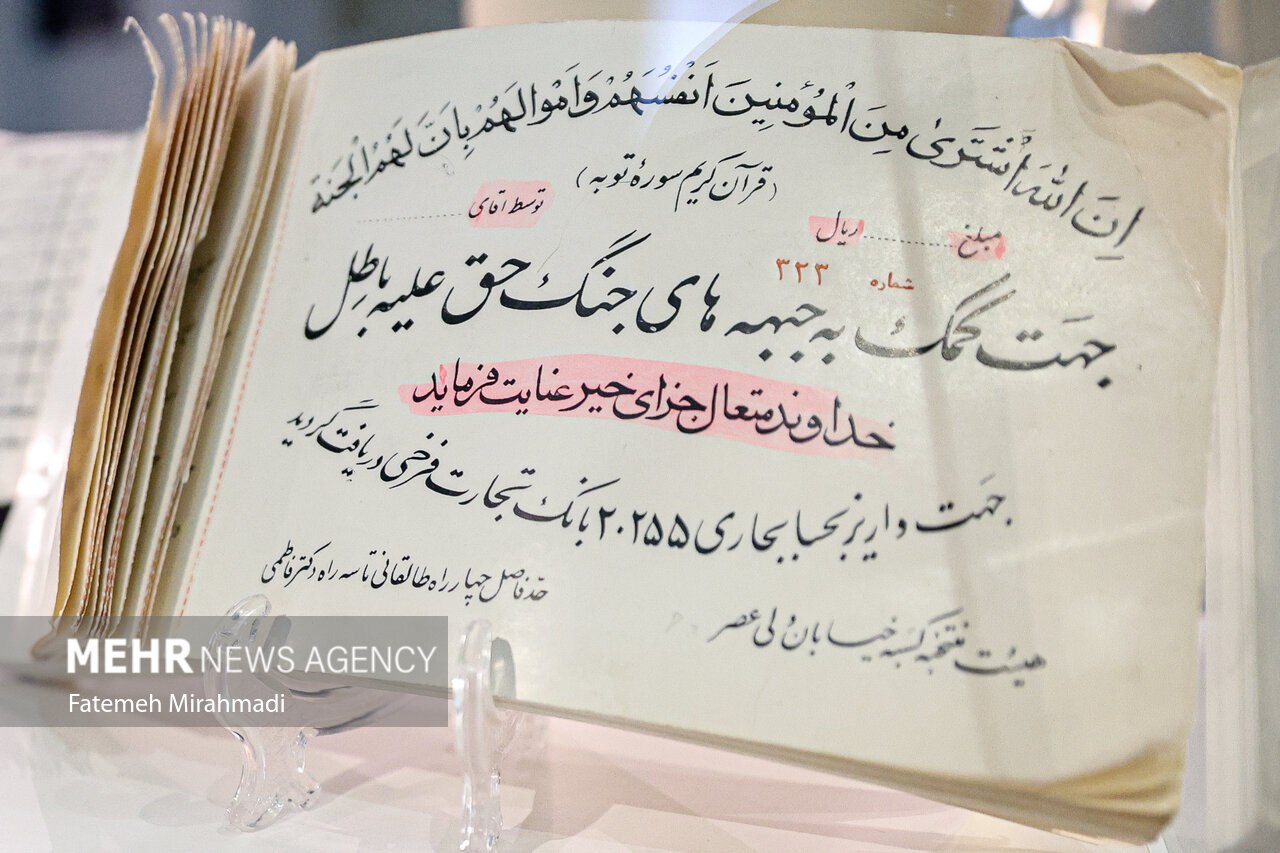 اِنَ اللّٰهَ اشْتَرىٰ مِنَ الْمُؤمِنينَ اَنْفُسَهُمْ وَاَمْوالَهُمْ بِاَنَّ لَهُمْ الْجَنة
(قرآن کریم سورهٔ توبه)
مبلغ ............ ریال توسط آقای ................
شماره ۳۲۳
جهت کمک به جبهه های جنگ حق علیه باطل
خداوند متعال جزای خیر عنایت فرماید
جهت واریز بحساب جاری ۲۰۲۵۵ بانک تجارت فرخی دریافت گردید
هیئت منتخبه کسبه خیابان ولی عصر
حد فاصل چهار راه طالقانی تا سه راه دکتر فاطمی
MEHR NEWS AGENCY
Fatemeh Mirahmadi